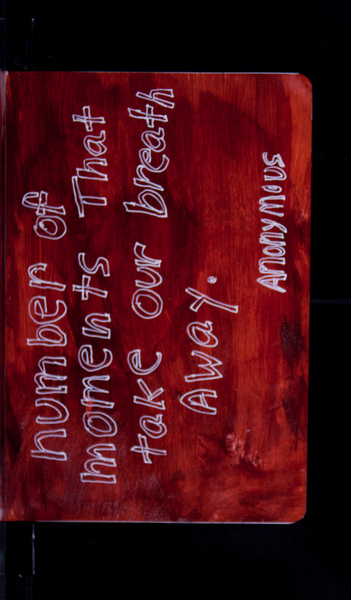 number of
moments That
take our breath
Away.
Anonymous